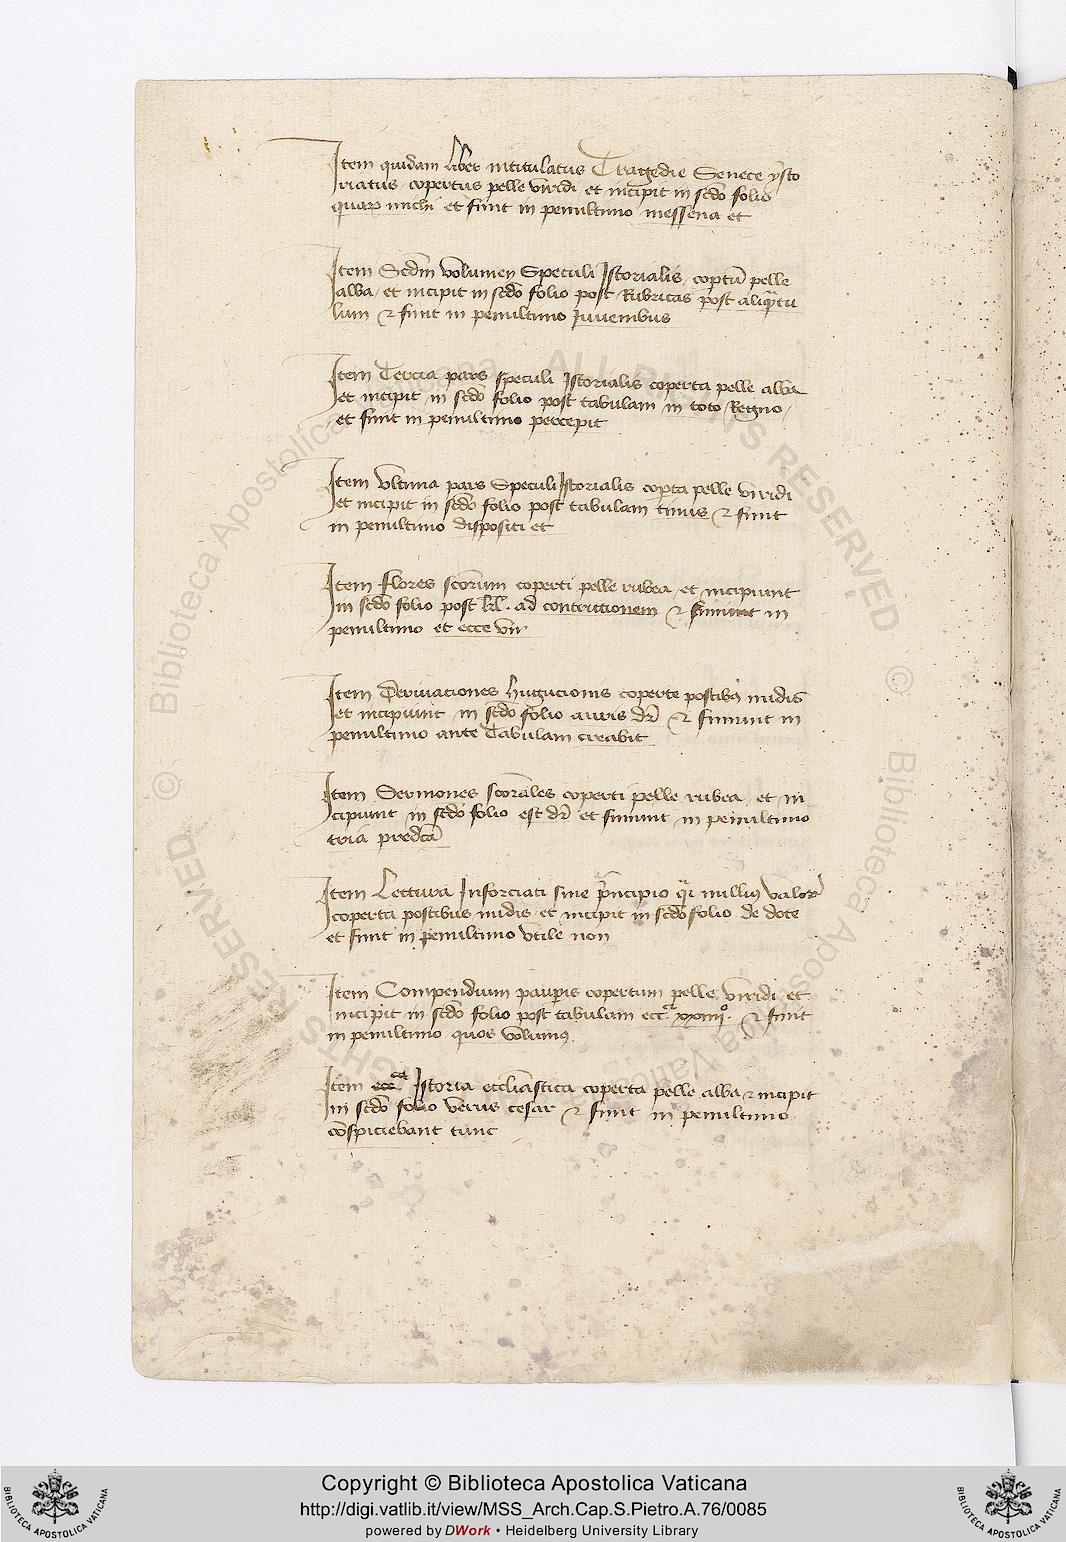 Item quidam liber intitulatus Tragedie Senece ysto
riatus copertus pelle viridi et incipit in scdo folio
michi et finit in penultimo messena et
Item Scdm volumen Speculi Istorialis coptu pelle
alba et incipit in scdo folio post Rubricas post aliqtu
lum et finit in penultimo Iuvenibus
Item Tercia pars speculi Istorialis coperta pelle alba
et incipit in scdo folio post tabulam in toto Regno
et finit in penultimo percepit
Item ultima pars Speculi Istorialis copta pelle viridi
et incipit in scdo folio post tabulam et finit
in penultimo dispositi et
Item flores scorum coperti pelle rubea et incipiunt
in scdo folio post kl. ad contritionem et finiunt in
penultimo et ecce vir
Item Derivaciones hugucionis coperte postibus nudis
et incipiunt in scdo folio auris dr et finiunt in
penultimo ante Tabulam creabit
Item Sermones scorales coperti pelle rubea et in
cipiunt in scdo folio est dr et finiunt in penultimo
tria predca
Item Lectura Inforciati sine principio qr nullius valor
coperta postibus nudis et incipit in scdo folio de dote
et finit in penultimo utile non
Item Compendium paupis copertum pelle viridi et
incipit in scdo folio post tabulam xxiiij et finit
in penultimo quos volumus
Item Istoria eccliastica coperta pelle alba et incipit
in scdo folio verus cesar et finit in penultimo
conspiciebant tunc
© Biblioteca Apostolica Vaticana ALL RIGHTS RESERVED
© Biblioteca Apostolica Vaticana ALL RIGHTS RESERVED
Copyright © Biblioteca Apostolica Vaticana
http://digi.vatlib.it/view/MSS_Arch.Cap.S.Pietro.A.76/0085
powered by DWork • Heidelberg University Library
BIBLIOTECA APOSTOLICA VATICANA
BIBLIOTECA APOSTOLICA VATICANA